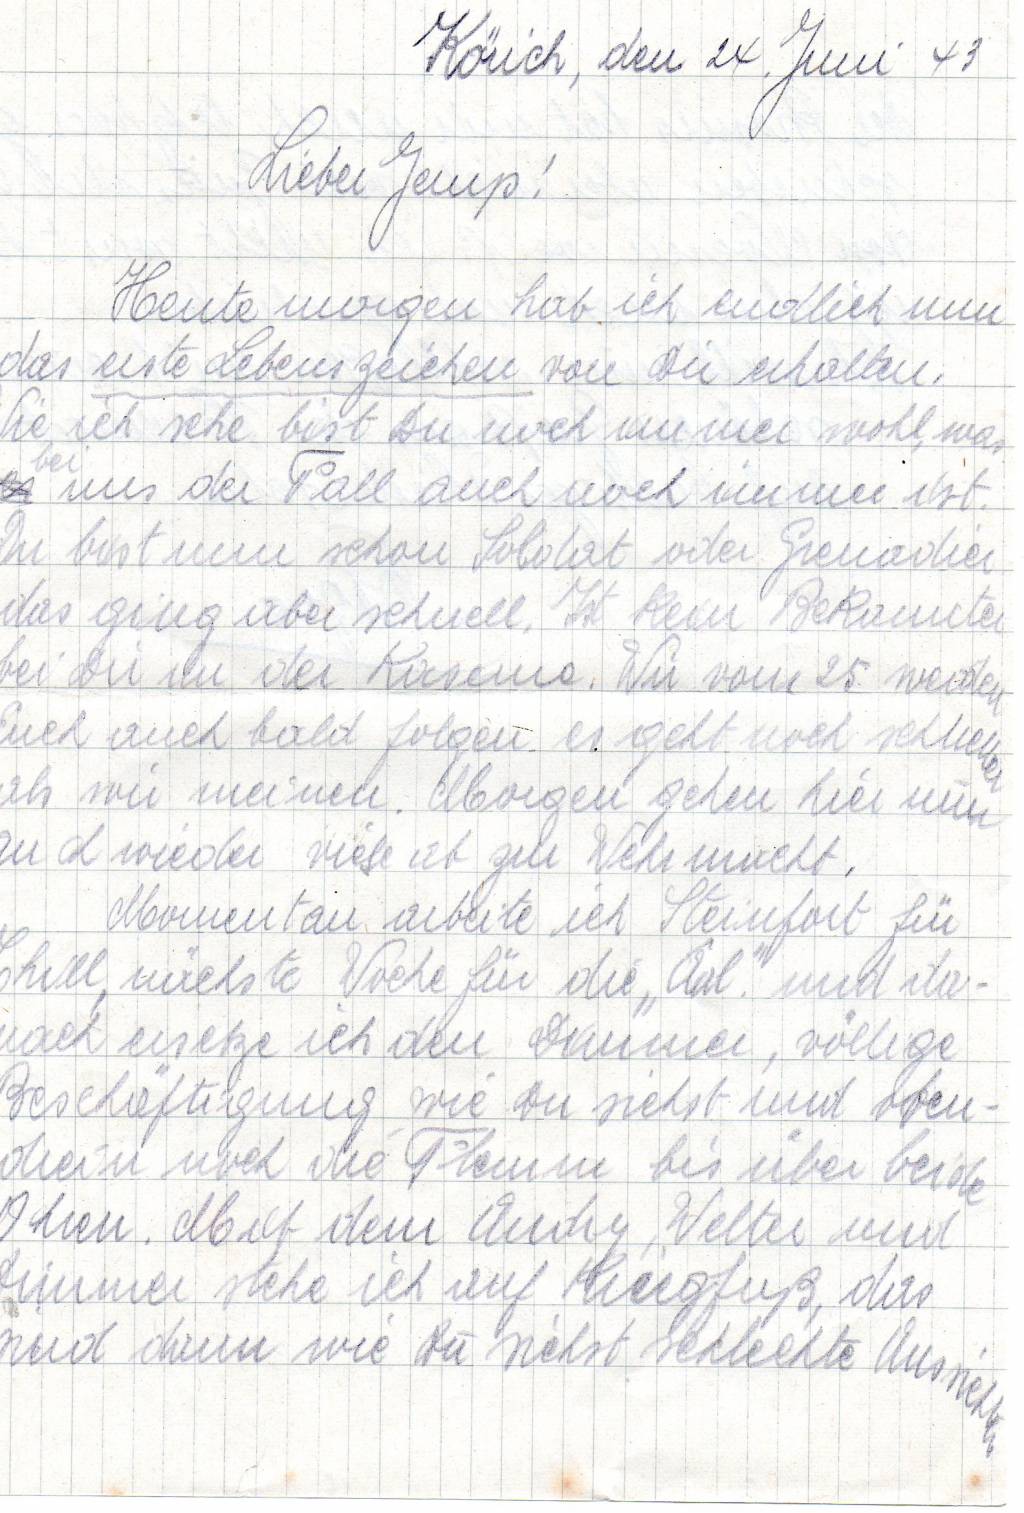 Körich, den 24. Juni 43
Lieber Jemp!
Heute morgen hab ich endlich nun
das erste Lebenszeichen von Dir erhalten.
Wie ich sehe bist Du noch immer wohl, was
bei
uns der Fall auch noch immer ist.
Du bist nun schon Soldat oder Grenadier
das ging aber schnell. Ist kein Bekannter
bei Dir in der Kaserne. Wir vom 25 werden
Euch auch bald folgen es geht noch schneller
als wir meinen. Morgen gehen hier nun
und wieder viele ab zur Wehrmacht.
Momentan arbeite ich Steinfort für
Shell, nächste Woche für die „ “ und da-
nach ersetze ich den , völlige
Beschäftigung wie Du siehst und oben-
drein noch die Flemm bis über beide
Ohren. Mit dem Andry, Welter und
stehe ich auf Kriegfuß, das
sind dann wie Du siehst schlechte Aussichten